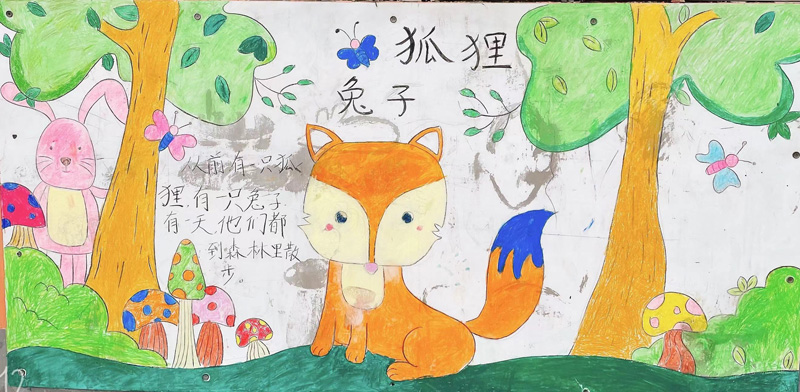 狐狸
兔子
从前有一只狐
狸,有一只兔子
有一天,他们都
到森林里散
步。